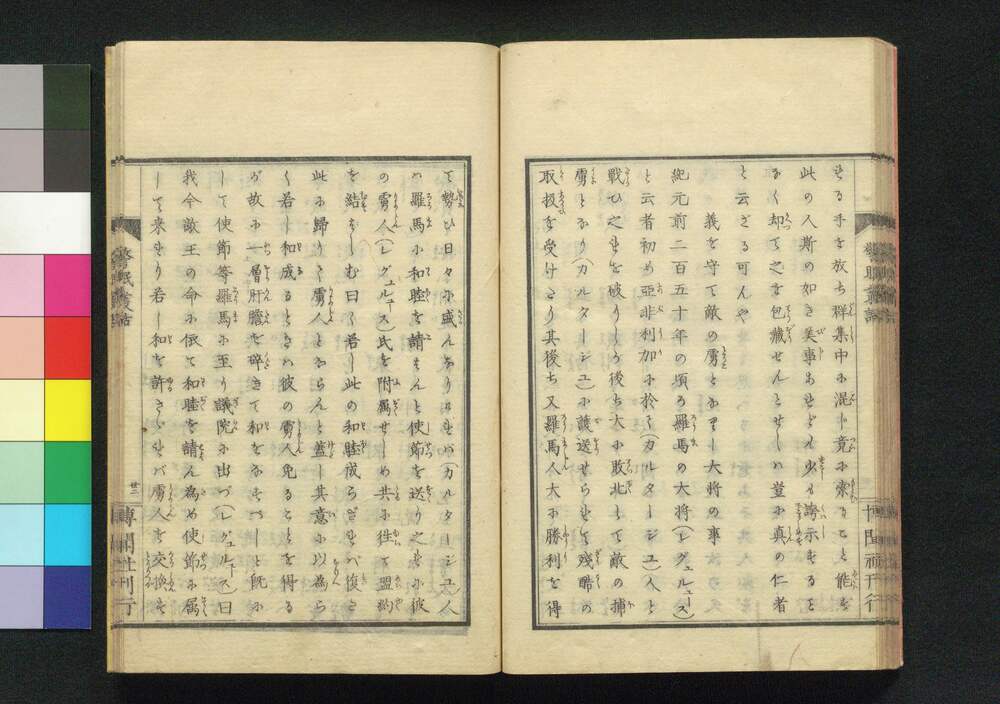 せる手を放ち群集中に混じ竟に索ること能はず
此の人斯の如き美事あれども少も誇示するを
なく却て之を包蔵せんとせしハ豈に真の仁者
と云ざる可んや
義を守て敵の虜となりし大将の事
紀元前二百五十年の頃ろ羅馬の大将(レグュルュース)
と云者初め亜非利加に於て(カルタージュ)人と
戦ひ之を破りしが後ち大に敗北して敵の捕
虜となり(カルタージュ)に護送せられて残酷の
取扱を受けたり其後ち又羅馬人大に勝利を得
て勢ひ日々に盛んなりければ(カルタージュ)人
ハ羅馬に和睦を請はんと使節を送り之れに彼
の虜人(レグュルュース)氏を附属せしめ共に往て盟約
を結ばしむ曰く若し此の和睦成らざれば復た
此に歸りて虜人とならんと蓋し其意に以為ら
く若し和成るときハ彼の虜人免るゝことを得る
が故に一層肝膽を砕きて和をなすべしと既に
して使節等羅馬に至り議院に出づ(レグュルュース)曰
我今敵王の命に依て和睦を請ん為め使節に属
して来れり若し和を許さゞれば虜人を交換せ
警眠叢話
博聞社刊行
警眠叢話
廿二
博聞社刊行